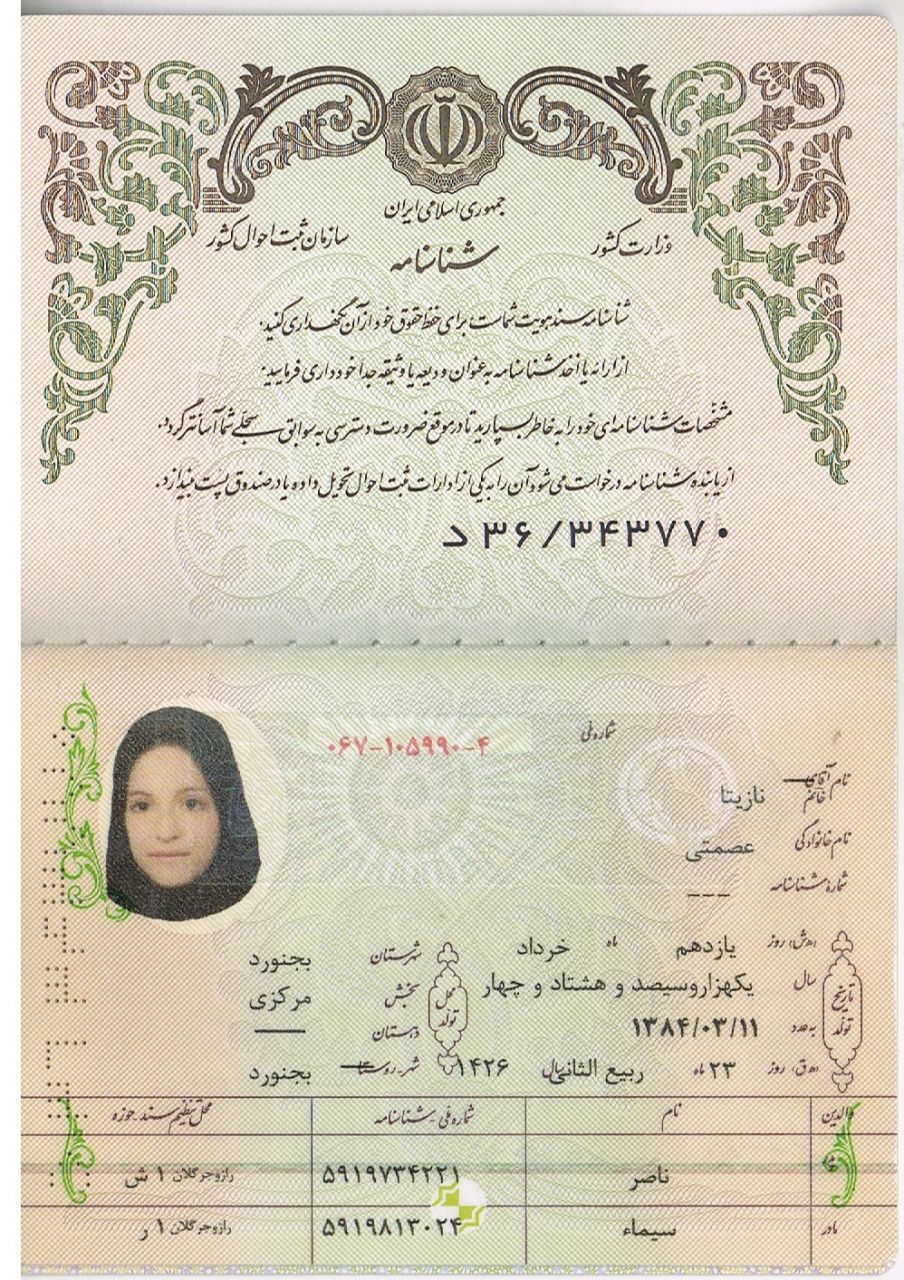 جمهوری اسلامی ایران
وزارت کشور
سازمان ثبت احوال کشور
شناسنامه
شناسنامه سند هویت شماست برای حفظ حقوق خود از آن نگهداری کنید.
از ارائه یا اخذ شناسنامه به عنوان ودیعه یا وثیقه جدا خودداری فرمایید.
مشخصات شناسنامه‌ای خود را به خاطر بسپارید تا در موقع ضرورت دسترسی به سوابق سجلی شما آسانتر گردد.
از یابنده شناسنامه درخواست می‌شود آن را به یکی از ادارات ثبت احوال تحویل داده یا در صندوق پست بیندازد.
د ۳۶/۳۴۳۷۷۰
شماره ملی ۰۶۷-۱۰۵۹۹۰-۴
نام آقای خانم نازیتا
نام خانوادگی عصمتی
شماره شناسنامه ---
تاریخ تولد
(ه‍.ش) روز یازدهم ماه خرداد
سال یکهزار و سیصد و هشتاد و چهار
به عدد ۱۳۸۴/۰۳/۱۱
(ه‍.ق) روز ۲۳ ماه ربیع الثانی سال ۱۴۲۶
محل تولد
شهرستان بجنورد
بخش مرکزی
دهستان ——
شهر-روستا بجنورد
والدین نام شماره ملی-شناسنامه محل تنظیم سند-حوزه
پدر ناصر ۵۹۱۹۷۳۴۲۲۱ رازوجرگلان ۱ ش
مادر سیماء ۵۹۱۹۸۱۳۰۲۴ رازوجرگلان ۱ ر